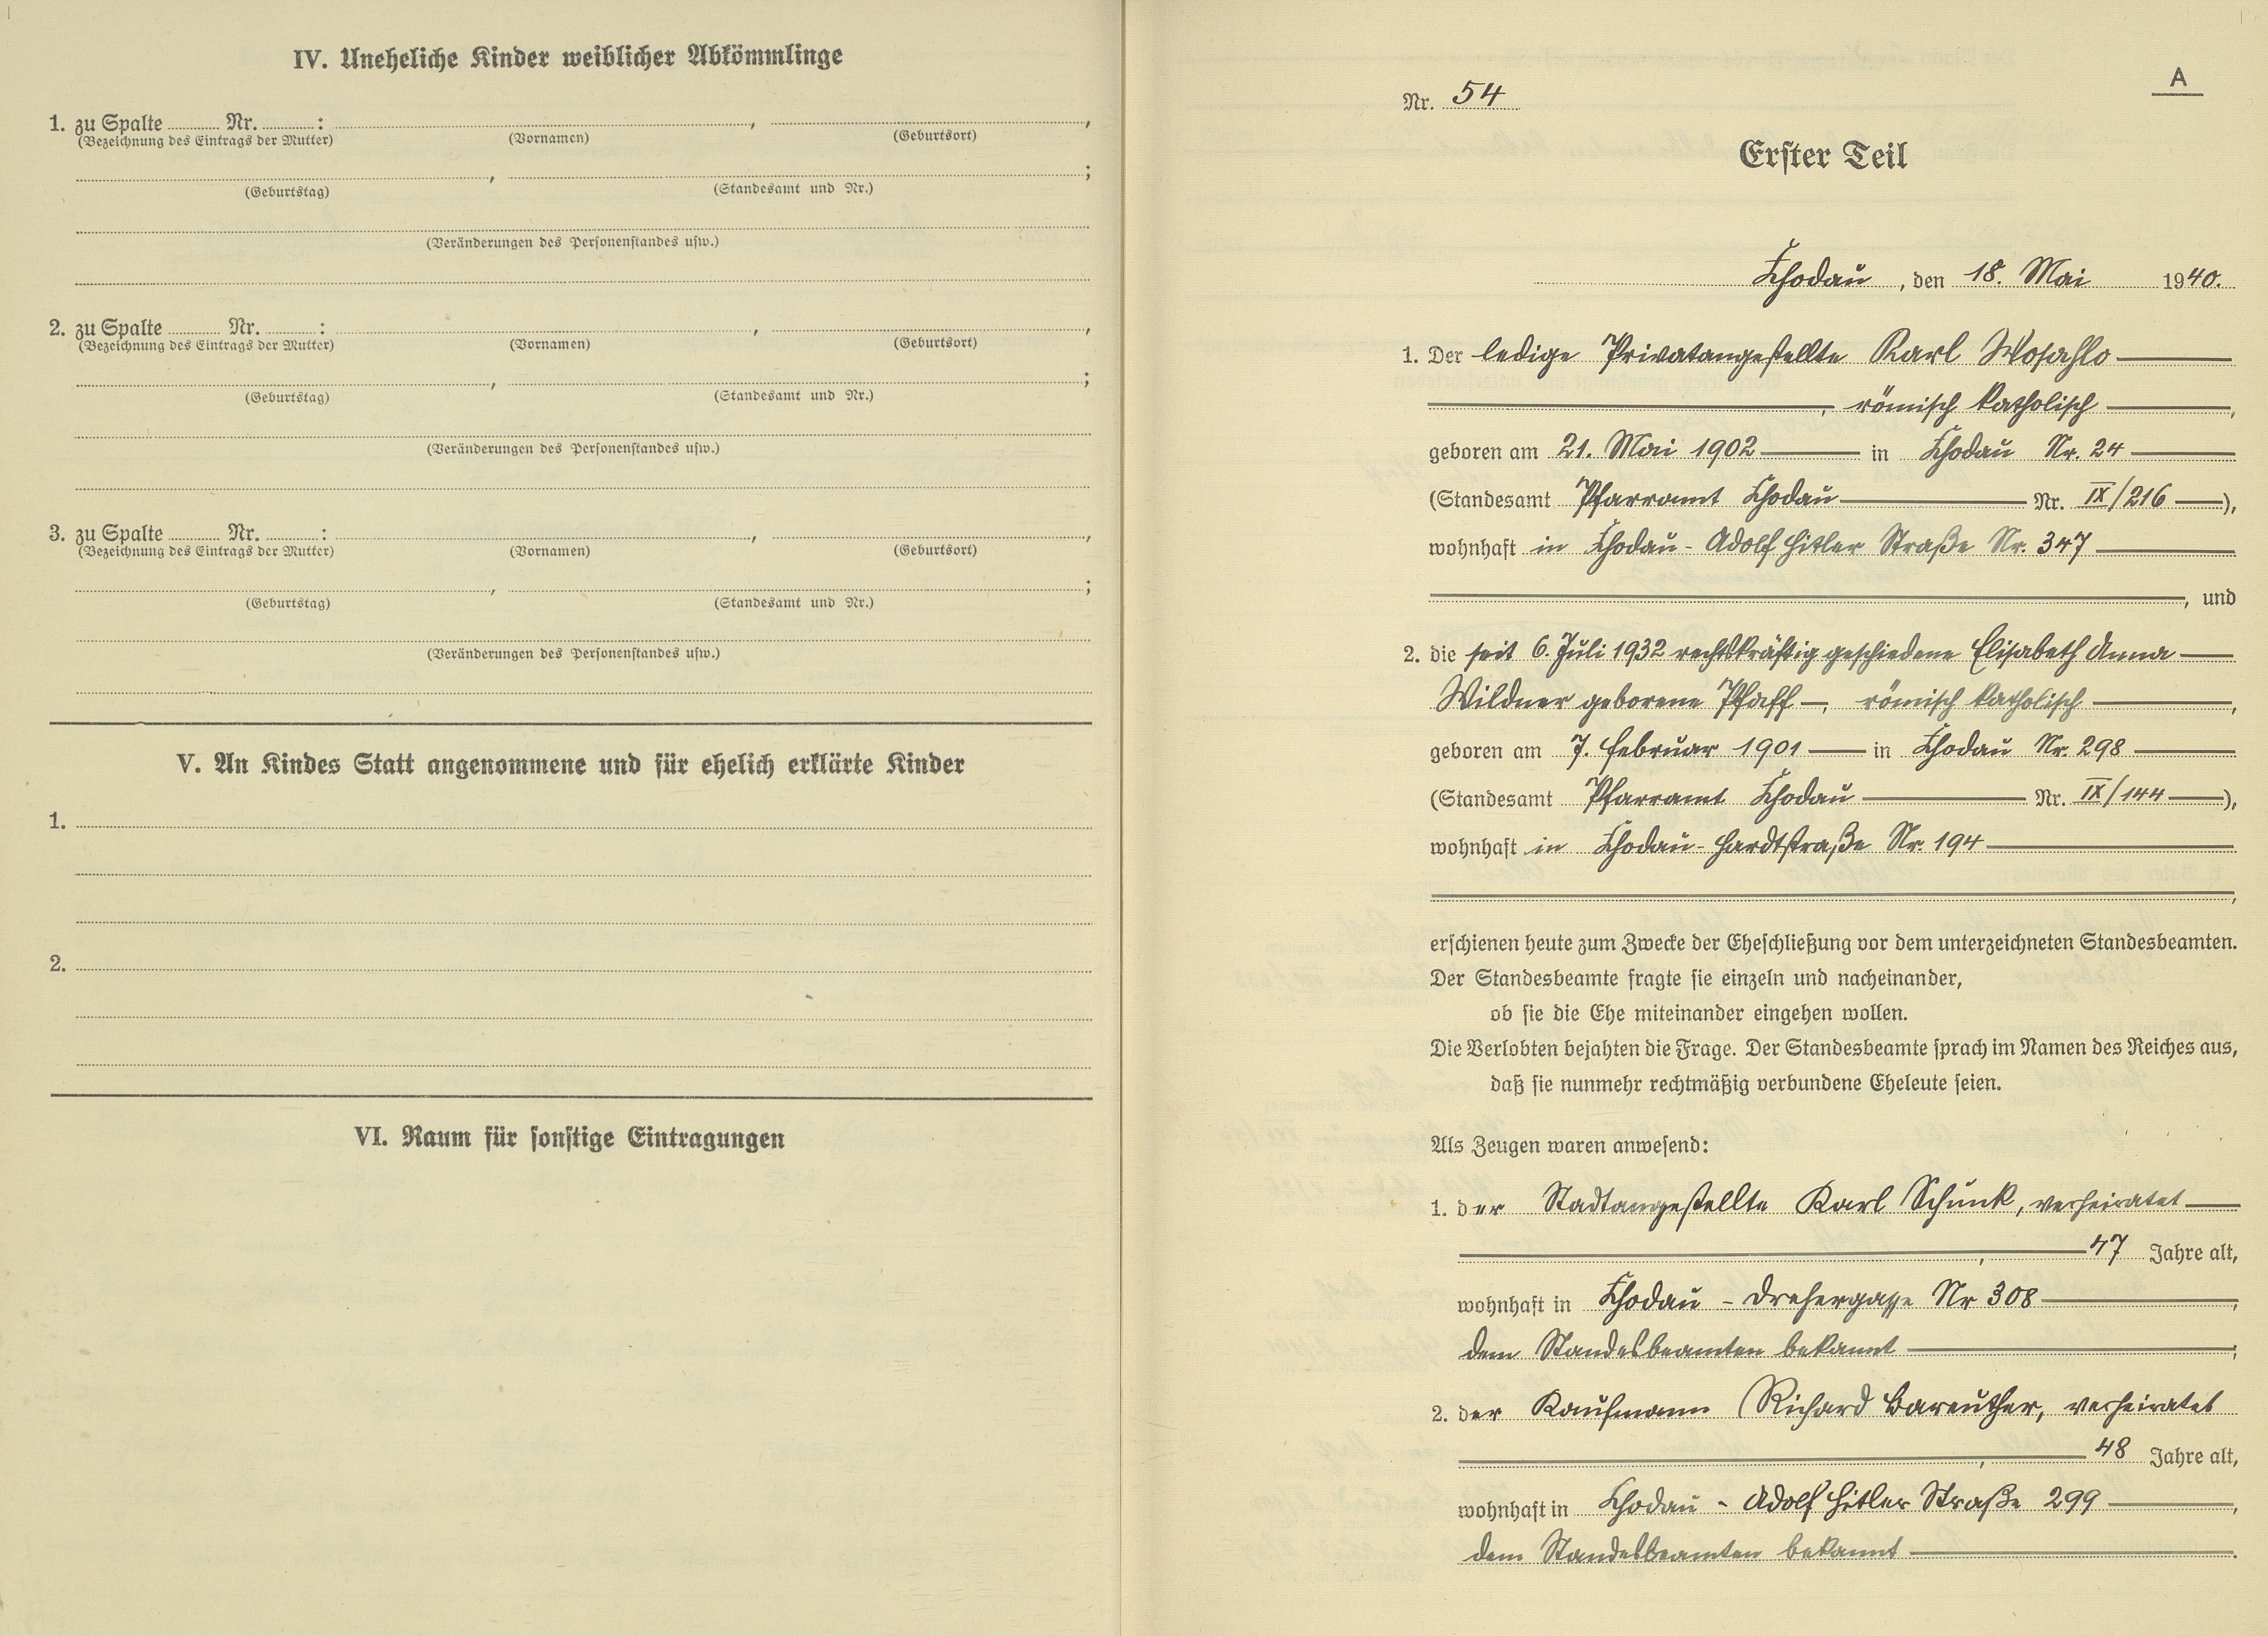 IV. Uneheliche Kinder weiblicher Abkömmlinge
1. zu Spalte ........ Nr. ........ : ........, ........,
(Bezeichnung des Eintrags der Mutter) (Vornamen) (Geburtsort)
........, ........;
(Geburtstag) (Standesamt und Nr.)
(Veränderungen des Personenstandes usw.)
2. zu Spalte ........ Nr. ........ : ........, ........,
(Bezeichnung des Eintrags der Mutter) (Vornamen) (Geburtsort)
........, ........;
(Geburtstag) (Standesamt und Nr.)
(Veränderungen des Personenstandes usw.)
3. zu Spalte ........ Nr. ........ : ........, ........,
(Bezeichnung des Eintrags der Mutter) (Vornamen) (Geburtsort)
........, ........;
(Geburtstag) (Standesamt und Nr.)
(Veränderungen des Personenstandes usw.)
V. An Kindes Statt angenommene und für ehelich erklärte Kinder
1.
2.
VI. Raum für sonstige Eintragungen
A
Nr. 54
Erster Teil
Chodau, den 18. Mai 1940.
1. Der ledige Privatangestellte Karl Wosahlo
, römisch katholisch,
geboren am 21. Mai 1902 in Chodau Nr. 24
(Standesamt Pfarramt Chodau Nr. IX/216),
wohnhaft in Chodau - Adolf Hitler Straße Nr. 347
, und
2. die seit 6. Juli 1932 rechtskräftig geschiedene Elisabeth Anna
Wildner geborene Pfaff, römisch katholisch,
geboren am 7. Februar 1901 in Chodau Nr. 298
(Standesamt Pfarramt Chodau Nr. IX/144),
wohnhaft in Chodau - Hardtstraße Nr. 194
,
erschienen heute zum Zwecke der Eheschließung vor dem unterzeichneten Standesbeamten.
Der Standesbeamte fragte sie einzeln und nacheinander,
ob sie die Ehe miteinander eingehen wollen.
Die Verlobten bejahten die Frage. Der Standesbeamte sprach im Namen des Reiches aus,
daß sie nunmehr rechtmäßig verbundene Eheleute seien.
Als Zeugen waren anwesend:
1. der Stadtangestellte Karl Schunk, verheiratet
, 47 Jahre alt,
wohnhaft in Chodau - Drehergasse Nr 308,
dem Standesbeamten bekannt;
2. der Kaufmann Richard Bareuther, verheiratet
, 48 Jahre alt,
wohnhaft in Chodau - Adolf Hitler Straße 299,
dem Standesbeamten bekannt.